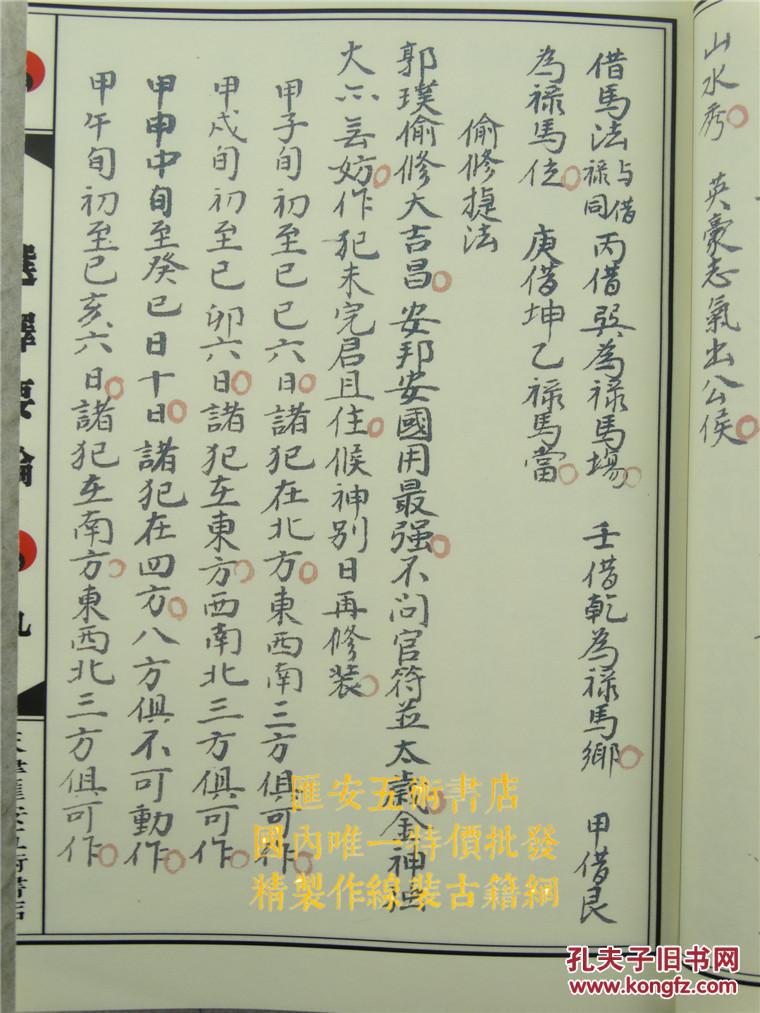 山水秀 英豪志氣出公侯
借馬法與借祿同丙借巽為祿馬場 壬借乾為祿馬鄉 甲借艮
為祿馬位 庚借坤乙祿馬當
偷修捷法
郭璞偷修大吉昌安邦安國用最强不问官符並太歲金神
火亦無妨作犯未完君且住候神别日再修装
甲子旬初至已巳六日諸犯在北方東西南三方俱可作
甲戍旬初至已卯六日諸犯在東方西南北三方俱可作
甲申中旬至癸已日十日諸犯在四方八方俱不可動作
甲午旬初至已亥六日諸犯在南方東西北三方俱可作
選擇要論
九
匯安五術書店
國內唯一特價批發
精製作線装古籍網
孔夫子旧书网
www.kongfz.com